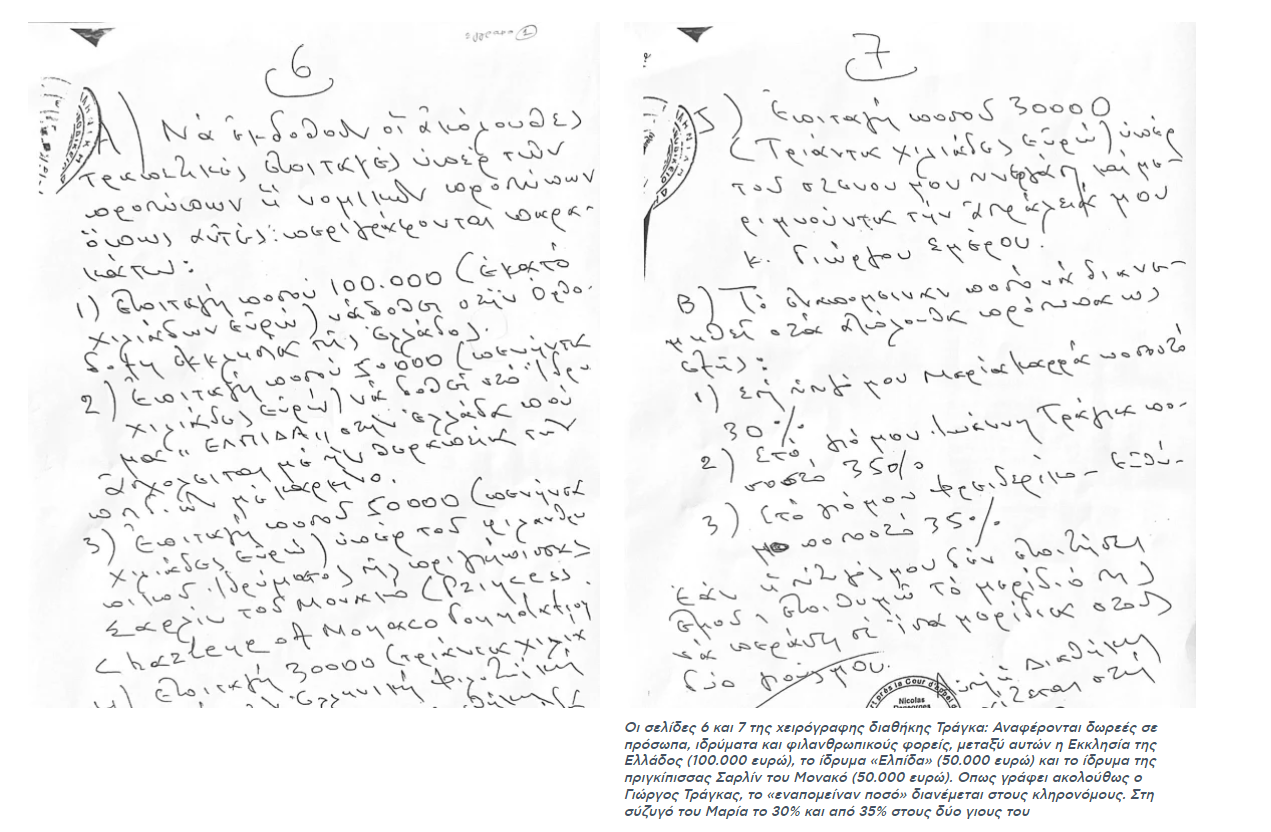 6
Α) Νά ἐκδοθοῦν οἱ ἀκόλουθες
τραπεζικές ἐπιταγές ὑπέρ τῶν
προσώπων ἤ νομικῶν προσώπων
ὅπως αὐτές περιγράφονται παρα-
κάτω:
1) Ἐπιταγή ποσοῦ 100.000 (ἑκατό
χιλιάδων εὐρώ) νά δοθεῖ στήν Ὀρθό-
δοξη ἐκκλησία τῆς Ἑλλάδος.
2) Ἐπιταγή ποσοῦ 50000 (πενήντα
χιλιάδες εὐρώ) νά δοθεῖ στό ἵδρυ
μα "ΕΛΠΙΔΑ" στήν Ἑλλάδα πού
ἀσχολεῖται μέ τήν θεραπεία τῶν
παιδιῶν μέ καρκίνο.
3) Ἐπιταγή ποσοῦ 50000 (πενήντα
χιλιάδες εὐρώ) ὑπέρ τοῦ φιλανθρω
πικοῦ ἱδρύματος τῆς πριγκήπισσας
Σαρλίν τοῦ Μονακό (Princess
Charlene of Monaco Foundation
4) ἐπιταγή 30000 (τριάντα χιλιά
Ἑλληνική
7
5) Ἐπιταγή ποσοῦ 30000
(Τριάντα χιλιάδες εὐρώ) ὑπέρ
τοῦ στενοῦ μου συνεργάτη καί με-
ριμνοῦντα τήν ἀσφάλειά μου
κ. Γιώργου
Β) Τό ἐναπομείναν ποσό νά διανε-
μηθεῖ στά ἀκόλουθα πρόσωπα ὡς
ἑξῆς:
1) Στή σύζυγό μου Μαρία Καρρά ποσοστό
30%
2) Στό γιό μου Ἰωάννη Τράγκα πο-
σοστό 35%
3) Στό γιό μου Φρειδερίκο-Εὐθύ-
μο ποσοστό 35%
Ἐάν ἡ σύζυγός μου δέν ἐπιζήσῃ
ἐμοῦ, ἐπιθυμῶ τό μερίδιό της
νά περάσῃ σέ ἴσα μερίδια στούς
δύο γιούς μου.
Αὐτή ἡ Διαθήκη
στή
près la Cour d'Appel
Nicolas
Οι σελίδες 6 και 7 της χειρόγραφης διαθήκης Τράγκα: Αναφέρονται δωρεές σε
πρόσωπα, ιδρύματα και φιλανθρωπικούς φορείς, μεταξύ αυτών η Εκκλησία της
Ελλάδος (100.000 ευρώ), το ίδρυμα «Ελπίδα» (50.000 ευρώ) και το ίδρυμα της
πριγκίπισσας Σαρλίν του Μονακό (50.000 ευρώ). Οπως γράφει ακολούθως ο
Γιώργος Τράγκας, το «εναπομείναν ποσό» διανέμεται στους κληρονόμους. Στη
σύζυγό του Μαρία το 30% και από 35% στους δύο γιους του